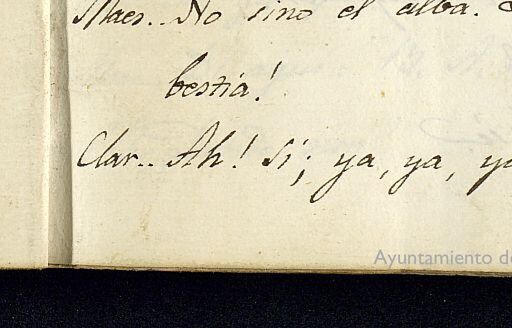 Maes.. No sino el alba.
bestia!
Clar.. Ah! Si; ya, ya, ya
Ayuntamiento de